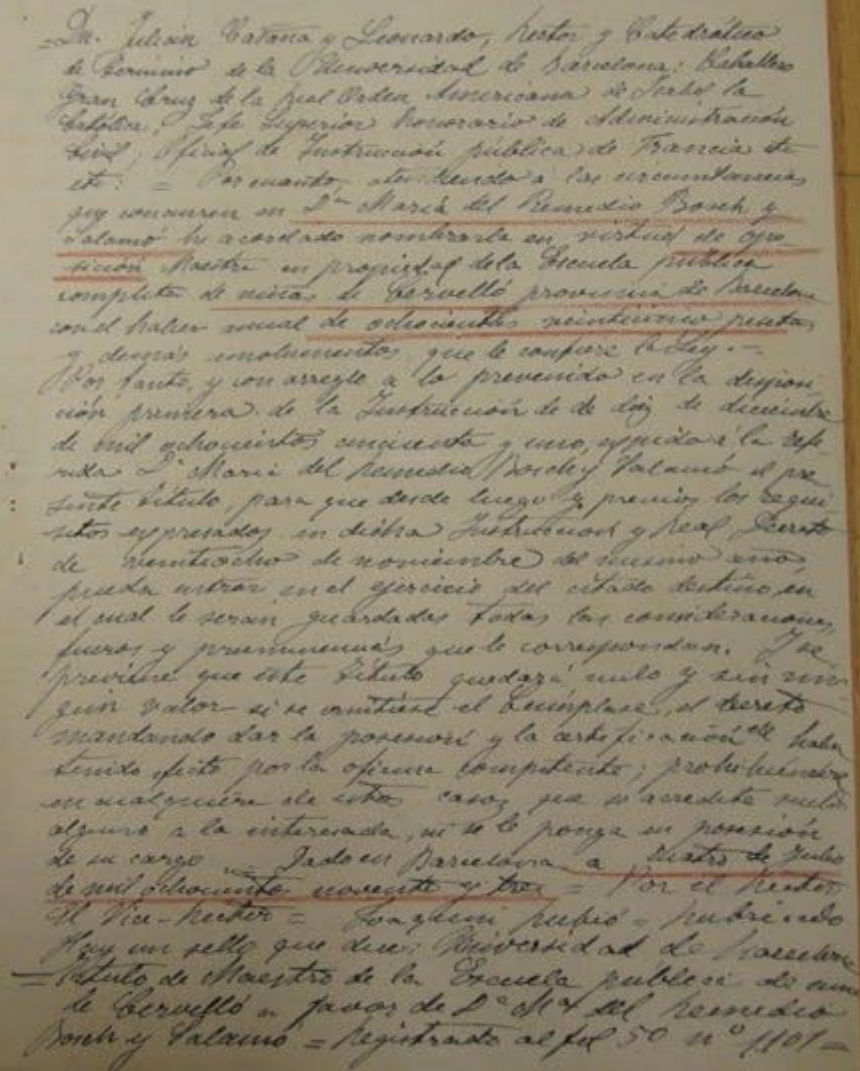 =Dn. Julián Casaña y Leonardo, Rector y Catedrático
de término de la Universidad de Barcelona; Caballero
Gran Cruz de la Real Orden Americana de Isabel la
Católica; Jefe Superior honorario de Administración
Civil; Oficial de Instrucción pública de Francia etc
etc: = Por cuanto, atendiendo a las circunstancias
que concurren en Dª María del Remedio Bosch y
Salamó he acordado nombrarla en virtud de opo-
sición Maestra en propiedad de la Escuela pública
completa de niñas de Cervelló provincia de Barcelona
con el haber anual de ochocientas veinticinco pesetas
y demás emolumentos que le confiere la Ley.=
Por tanto, y con arreglo a lo prevenido en la disposi-
ción primera de la Instrucción de de diez de diciembre
de mil ochocientos cincuenta y uno, expido á la refe-
rida Dª María del Remedio Bosch y Salamó el pre-
sente título, para que desde luego y previos los requi-
sitos expresados en dicha Instrucción y Real Decreto
de veintiocho de noviembre del mismo año,
pueda entrar en el ejercicio del citado destino en
el cual le serán guardadas todas las consideraciones,
fueros y preeminencias que le correspondan. Y se
previene que este título quedará nulo y sin nin-
gún valor si se omitiese el Cúmplase, el decreto
mandando dar la posesión y la certificación de haber
tenido efecto por la oficina competente; prohibiéndose
en cualquiera de estos casos que se acredite sueldo
alguno a la interesada, ni se le ponga en posesión
de su cargo = Dado en Barcelona a cuatro de Julio
de mil ochocientos noventa y tres = Por el Rector
El Vice-Rector = Joaquín Rubió = Rubricado
Hay un sello que dice: Universidad de Barcelona
= Título de Maestra de la Escuela pública de
de Cervelló a favor de Dª Mª del Remedio
Bosch y Salamó = Registrado al fol 50 nº 1101 =